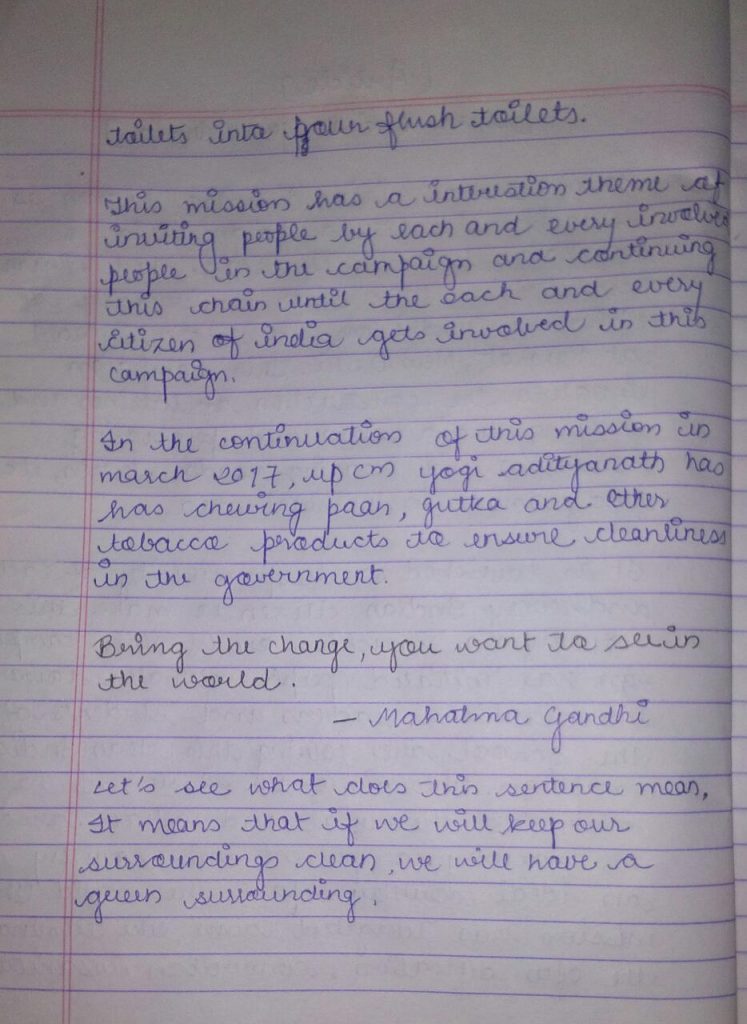 toilets into pour flush toilets.
This mission has a interestion theme of
inviting people by each and every involved
people in the campaign and continuing
this chain until the each and every
citizen of india gets involved in this
campaign.
In the continuation of this mission in
march 2017, up cm yogi adityanath has
has chewing paan, gutka and other
tobacco products to ensure cleanliness
in the government.
Bring the change, you want to see in
the world.
- Mahatma Gandhi
Let's see what does this sentence mean,
It means that if we will keep our
surroundings clean, we will have a
green surrounding.